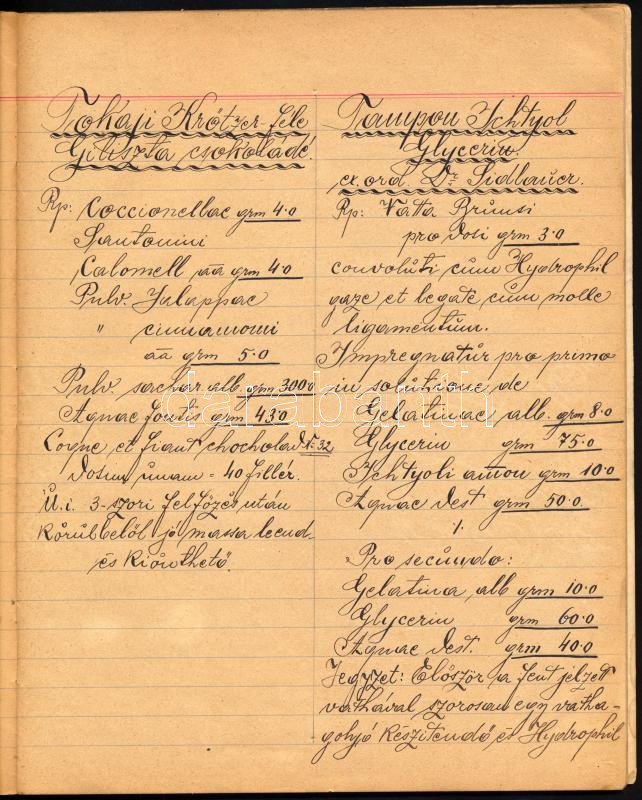 Tokaji Krötzer-féle
Giliszta csokoládé.
Rp: Coccionellae grm 4·0
Santonini
Calomell āā grm 4·0
Pulv. Jalappae
" cinnamomi
āā grm 5·0
Pulv. sachar alb. grm 300·0
Aquae fontis grm 43·0
Coque et fiant chocholad № 32
Dosus unam = 40 fillér.
U. i. 3-szori felfőzés után
Körülbelől jó massa leend
és kiönthető.
Tampon Ichtyol
Glycerin
ex. ord. Dr Sidlauer.
Rp: Vatta Brunsi
pro dosi grm 3·0
convoluti cum Hydrophil
gaze et legate cum molle
ligamentum.
Impregnatur pro primo
in solutione de
Gelatinae alb. grm 8·0
Glycerin grm 75·0
Ichtyoli amon grm 10·0
Aquae dest grm 50·0.
/.
Pro secundo:
Gelatina alb grm 10·0
Glycerin grm 60·0
Aquae dest. grm 40·0
Jegyzet: Először a fent jelzett
vathával szorosan egy vatha-
golyó készitendő és Hydrophil
darabanth